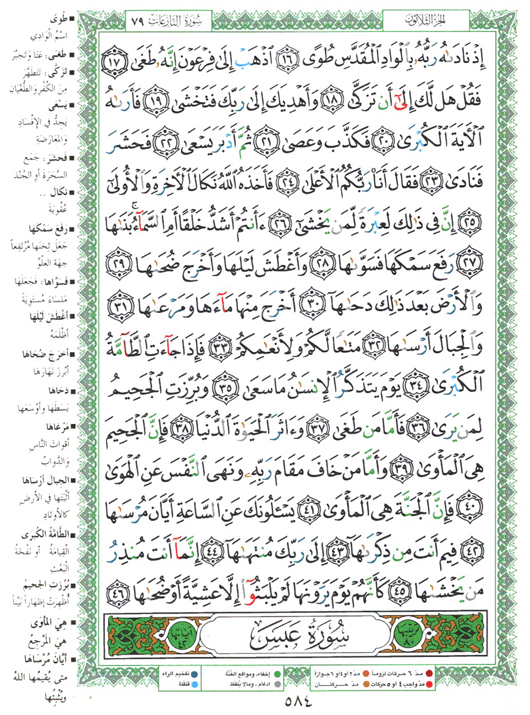 الجزء الثلاثون
سورة النازعات ٧٩
إِذْ نَادَىٰهُ رَبُّهُۥ بِٱلْوَادِ ٱلْمُقَدَّسِ طُوًى ١٦ ٱذْهَبْ إِلَىٰ فِرْعَوْنَ إِنَّهُۥ طَغَىٰ ١٧
فَقُلْ هَل لَّكَ إِلَىٰٓ أَن تَزَكَّىٰ ١٨ وَأَهْدِيَكَ إِلَىٰ رَبِّكَ فَتَخْشَىٰ ١٩ فَأَرَىٰهُ
ٱلْـَٔايَةَ ٱلْكُبْرَىٰ ٢٠ فَكَذَّبَ وَعَصَىٰ ٢١ ثُمَّ أَدْبَرَ يَسْعَىٰ ٢٢ فَحَشَرَ
فَنَادَىٰ ٢٣ فَقَالَ أَنَا۠ رَبُّكُمُ ٱلْأَعْلَىٰ ٢٤ فَأَخَذَهُ ٱللَّهُ نَكَالَ ٱلْـَٔاخِرَةِ وَٱلْأُولَىٰٓ
٢٥ إِنَّ فِى ذَٰلِكَ لَعِبْرَةً لِّمَن يَخْشَىٰٓ ٢٦ ءَأَنتُمْ أَشَدُّ خَلْقًا أَمِ ٱلسَّمَآءُ ۚ بَنَىٰهَا
٢٧ رَفَعَ سَمْكَهَا فَسَوَّىٰهَا ٢٨ وَأَغْطَشَ لَيْلَهَا وَأَخْرَجَ ضُحَىٰهَا ٢٩
وَٱلْأَرْضَ بَعْدَ ذَٰلِكَ دَحَىٰهَآ ٣٠ أَخْرَجَ مِنْهَا مَآءَهَا وَمَرْعَىٰهَا ٣١
وَٱلْجِبَالَ أَرْسَىٰهَا ٣٢ مَتَـٰعًا لَّكُمْ وَلِأَنْعَـٰمِكُمْ ٣٣ فَإِذَا جَآءَتِ ٱلطَّآمَّةُ
ٱلْكُبْرَىٰ ٣٤ يَوْمَ يَتَذَكَّرُ ٱلْإِنسَـٰنُ مَا سَعَىٰ ٣٥ وَبُرِّزَتِ ٱلْجَحِيمُ
لِمَن يَرَىٰ ٣٦ فَأَمَّا مَن طَغَىٰ ٣٧ وَءَاثَرَ ٱلْحَيَوٰةَ ٱلدُّنْيَا ٣٨ فَإِنَّ ٱلْجَحِيمَ
هِىَ ٱلْمَأْوَىٰ ٣٩ وَأَمَّا مَنْ خَافَ مَقَامَ رَبِّهِۦ وَنَهَى ٱلنَّفْسَ عَنِ ٱلْهَوَىٰ
٤٠ فَإِنَّ ٱلْجَنَّةَ هِىَ ٱلْمَأْوَىٰ ٤١ يَسْـَٔلُونَكَ عَنِ ٱلسَّاعَةِ أَيَّانَ مُرْسَىٰهَا
٤٢ فِيمَ أَنتَ مِن ذِكْرَىٰهَآ ٤٣ إِلَىٰ رَبِّكَ مُنتَهَىٰهَآ ٤٤ إِنَّمَآ أَنتَ مُنذِرُ
مَن يَخْشَىٰهَا ٤٥ كَأَنَّهُمْ يَوْمَ يَرَوْنَهَا لَمْ يَلْبَثُوٓا۟ إِلَّا عَشِيَّةً أَوْ ضُحَىٰهَا ٤٦
سورة عبس
طُوًى
اسْمُ الوَادِي
طَغَى: عَتَا وَتَجَبَّرَ
تَزَكَّى: تَتَطَهَّرَ
مِنَ الكُفْرِ وَالطُّغْيَانِ
يَسْعَى
يَجِدُّ فِي الإِفْسَادِ
وَالمُعَارَضَةِ
فَحَشَرَ: جَمَعَ
السَّحَرَةَ أَوِ الجُنْدَ
نَكَالَ ..
عُقُوبَةَ
رَفَعَ سَمْكَهَا
جَعَلَ ثِخَنَهَا مُرْتَفِعاً
جِهَةَ العُلُوِّ
فَسَوَّاهَا: فَجَعَلَهَا
مَلْسَاءَ مُسْتَوِيَةً
أَغْطَشَ لَيْلَهَا
أَظْلَمَهُ
أَخْرَجَ ضُحَاهَا
أَبْرَزَ نَهَارَهَا
دَحَاهَا
بَسَطَهَا وَأَوْسَعَهَا
مَرْعَاهَا
أَقْوَاتَ النَّاسِ
وَالدَّوَابِّ
الجِبَالَ أَرْسَاهَا
أَثْبَتَهَا فِي الأَرْضِ
كَالأَوْتَادِ
الطَّامَّةُ الكُبْرَى
القِيَامَةُ أَوْ نَفْخَةُ
البَعْثِ
بُرِّزَتِ الجَحِيمُ
أُظْهِرَتْ إِظْهَاراً بَيِّناً
هِيَ المَأْوَى
هِيَ المَرْجِعُ
أَيَّانَ مُرْسَاهَا
مَتَى يُقِيمُهَا اللهُ
وَيُثْبِتُهَا
مدّ ٦ حركات لزوماً مدّ ٢ أو ٤ أو ٦ جوازاً إخفاء، ومواقع الغُنَّة تفخيم الراء
مدّ واجب ٤ أو ٥ حركات مدّ حركتان ادغام، وما لا يُلفظ قلقلة
٥٨٤